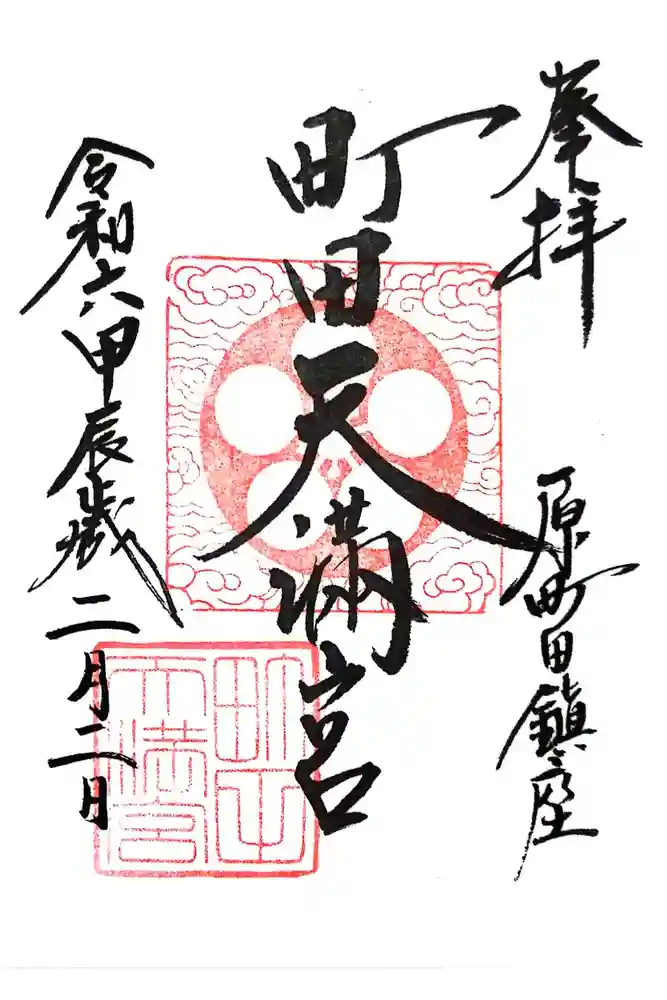 奉拝
原町田鎮座
町田天満宮
町田天満宮
令和六甲辰歳二月二日